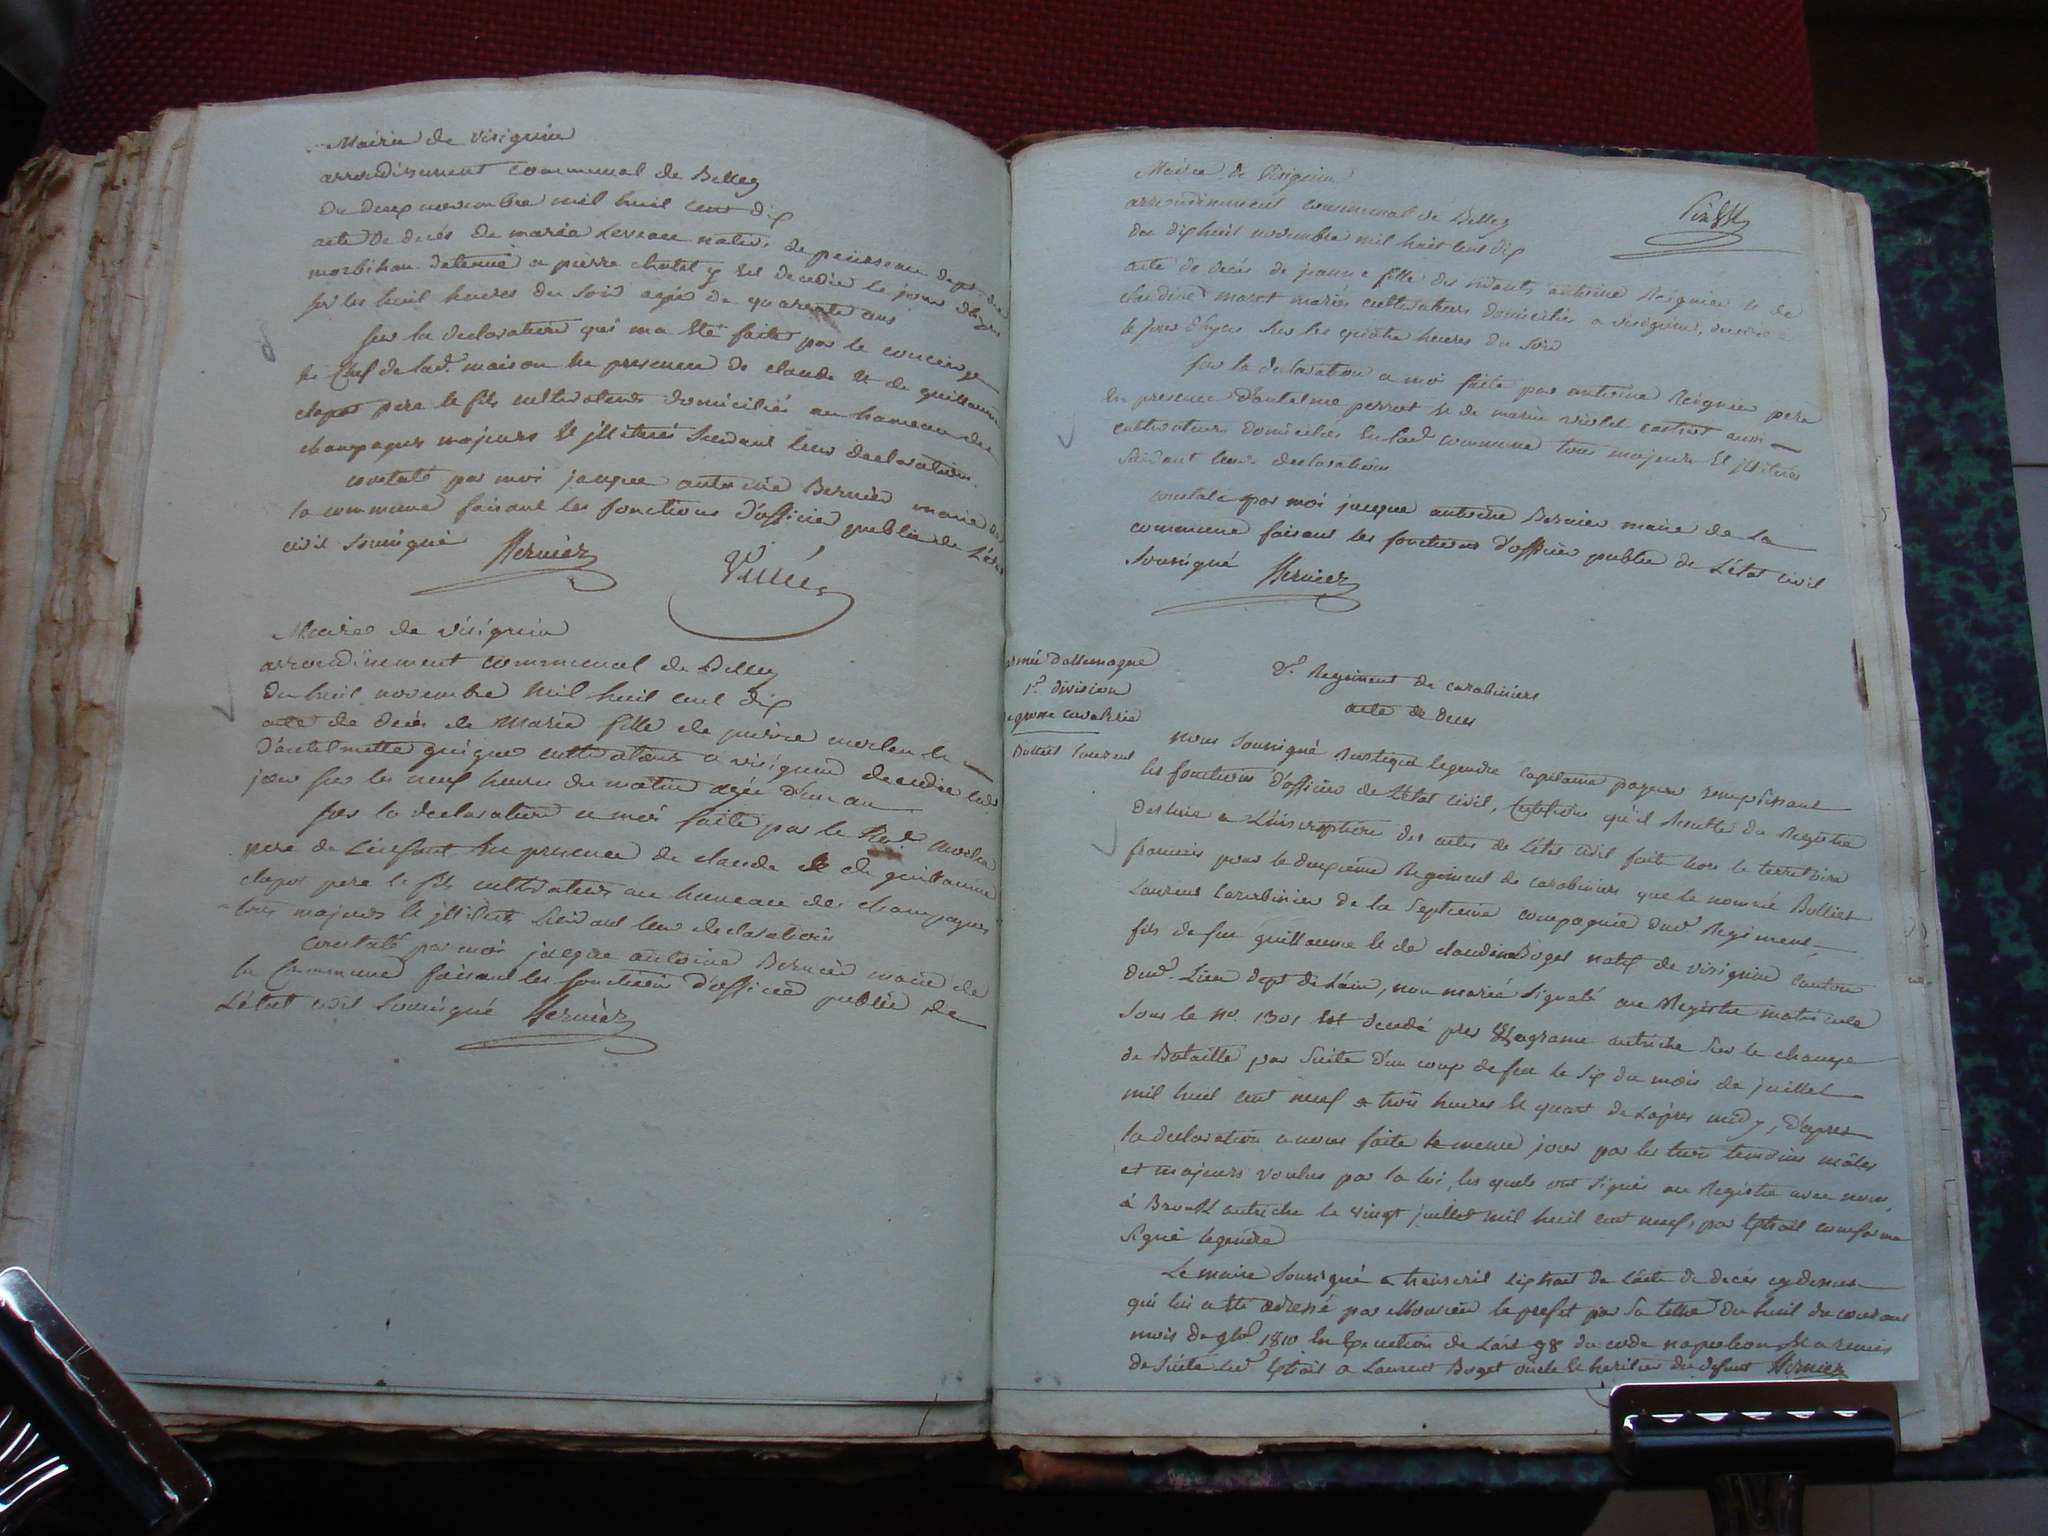 Mairie de virignin
arrondissement communal de Belley
du deux novembre mil huit cent dix
acte de decés de maria Leveau native de dept du
morbihan detenue a pierre chatel y est decedée le jour d'hyer
sur les huit heures du soir agée de quarante ans
sur la declaration qui ma été faite par le concierge
en Chef de lad. maison en presence de claude et de guillaume
clapot pere et fils cultivateurs domiciliés au hameau des
champagnes majeurs et illiterés suivant leur declaration.
constaté par moi jacque antoine Bernier maire de
la commune faisant les fonctions d'officier public de L'état
civil soussigné Bernier
Mairie de virignin
arrondissement communal de Belley
du huit novembre mil huit cent dix
acte de decés de Maria fille de pierre merlin et
d'antelmette cultivateurs a virignin decedée led.
jour sur les neuf heures du matin agée d'un an
sur la declaration a moi faite par le merlin
pere de L'enfant en presence de claude et de guillaume
clapot pere et fils cultivateurs au hameau des champagnes
tous majeurs et illiterés suivant leur declaration
constaté par moi jacque antoine Bernier maire de
la Commune faisant les fonctions d'officier public de
L'état civil soussigné Bernier
Mairie de Virignin
arrondissement communal de Belley
du dix huit novembre mil huit cent dix
acte de decés de jeanne fille des vivants antoine Reignier et de
claudine maret mariés cultivateurs domiciliés a virignin, decedée
le jour d'hyer sur les quatre heures du soir
sur la declaration a moi faite par antoine Reignier pere
en presence d'antelme perrot et de marin violet aussi
cultivateurs domiciliés en lad. commune tous majeurs et illiterés
suivant leurs declarations
constaté par moi jacque antoine Bernier maire de La
commune faisant les fonctions d'officier public de L'état civil
soussigné Bernier
armée d'allemagne
1re division
grosse cavalerie
Bolliet Laurent
2e Regiment de carabiniers
acte de deces
nous soussigné Rustique legendre capitaine payeur remplissant
les fonctions d'officier de L'état civil, Certifions qu'il Resulte du Registre
destiné a L'inscription des actes de L'état civil faits hors le territoire
francais pour le deuxième Regiment de carabiniers que le nommé Bolliet
Laurent Carabinier de la septieme compagnie dud. Regiment
fils de feu guillaume et de claudine Boget natif de virignin canton
dud. Lieu dept de L'ain, non marié signalé au Registre matricule
sous le no. 1301 est decedé pres Wagrame autriche sur le champ
de Bataille par suite d'un coup de feu le six du mois de juillet
mil huit cent neuf a trois heures et quart de L'apres midy, d'apres
la declaration a nous faite le meme jour par les trois temoins mâles
et majeurs voulus par la loi, les quels ont signés au Registre avec nous,
à autriche le vingt juillet mil huit cent neuf, par Extrait conforme
signé legendre
Le maire soussigné a transcrit L'extrait de L'acte de decés cy dessus
qui lui a été adressé par Monsieur le prefet par sa lettre du huit du courant
mois de 9bre 1810 en Execution de L'art 98 du code napoleon et a remis
de suite led. Extrait a Laurent Boget oncle et heritier du defunt Bernier